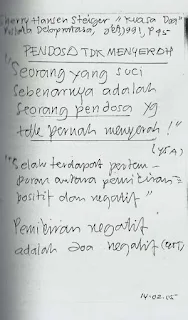 Sherry Hansen Steiger, "Kuasa Doa"
Pustaka Delapratasa, 1991, p 95
PENDOSA TDK MENYERAH
"Seorang yang suci
sebenarnya adalah
seorang pendosa yg
tdk pernah menyerah!"
(YSA)
"Selalu terdapat pertem-
puran antara pemikiran2
positif dan negatif"
Pemikiran negatif
adalah doa negatif
14-02-05